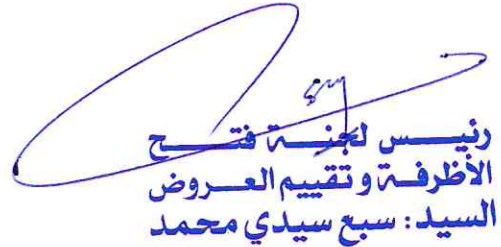 رئيس لجنة فتح
الأظرفة وتقييم العروض
السيد: سبع سيدي محمد